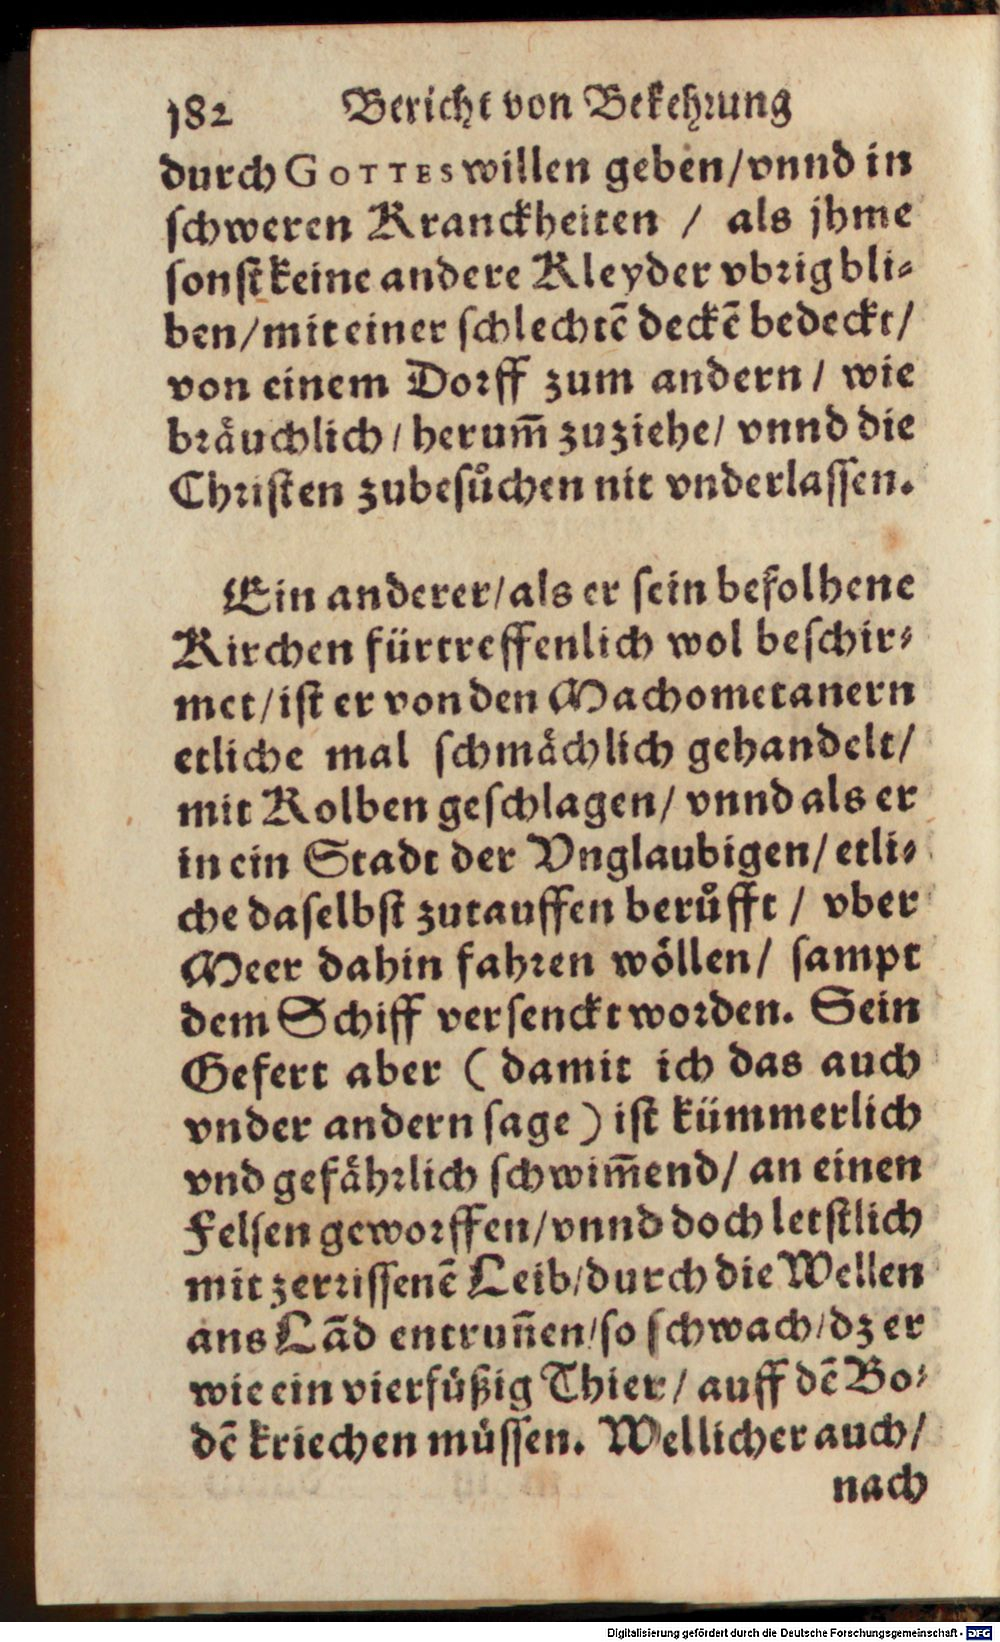 182 Bericht von Bekehrung
durch GOTTES willen geben/vnnd in
schweren Kranckheiten / als jhme
sonst keine andere Kleyder vbrig bli-
ben/mit einer schlechtē deckē bedeckt/
von einem Dorff zum andern / wie
bräuchlich / herum̄ zuziehe/ vnnd die
Christen zubesůchen nit vnderlassen.
Ein anderer/als er sein befolhene
Kirchen fürtreffenlich wol beschir-
met/ist er von den Machometanern
etliche mal schmächlich gehandelt/
mit Kolben geschlagen/ vnnd als er
in ein Stadt der Vnglaubigen/ etli-
che daselbst zutauffen berůfft / vber
Meer dahin fahren wöllen/ sampt
dem Schiff versenckt worden. Sein
Gefert aber ( damit ich das auch
vnder andern sage ) ist kümmerlich
vnd gefährlich schwim̄end/ an einen
Felsen geworffen/vnnd doch letstlich
mit zerrissenē Leib/durch die Wellen
ans Lād entrun̄en/so schwach/dz er
wie ein vierfüßig Thier/ auff dē Bo-
dē kriechen müssen. Wellicher auch/
nach
Digitalisierung gefördert durch die Deutsche Forschungsgemeinschaft - DFG